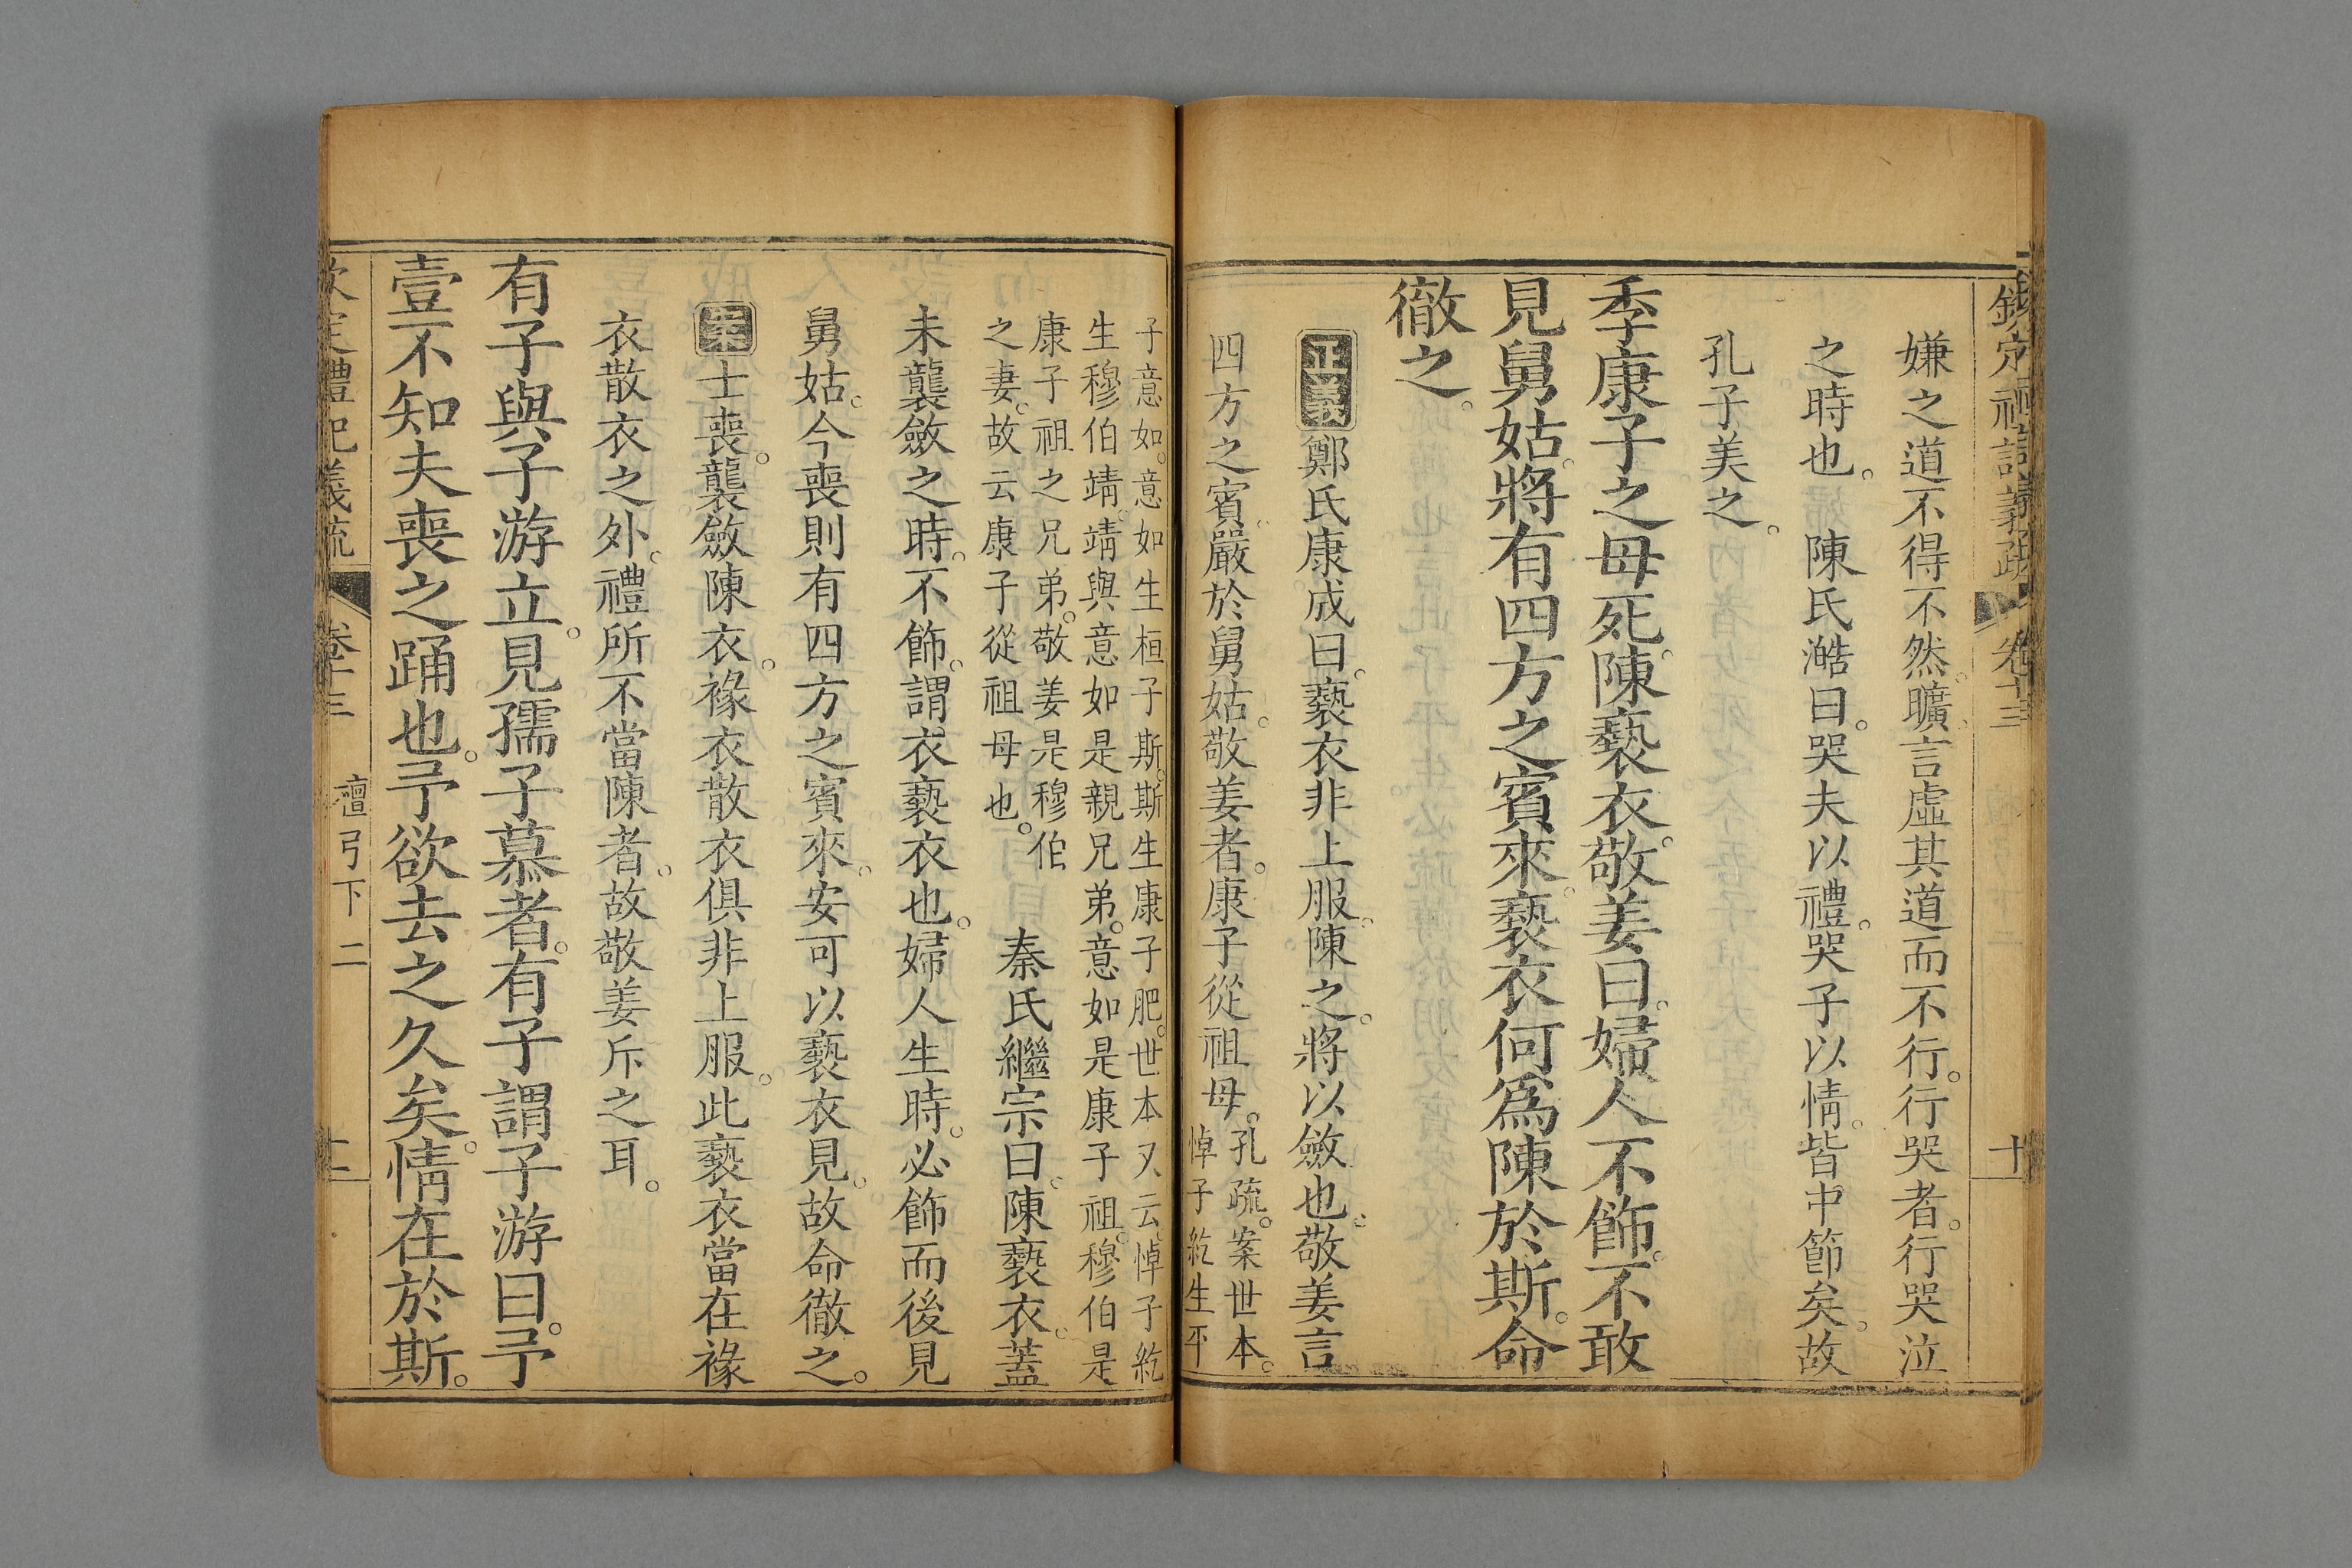 欽定禮記義疏 卷十三 十
嫌之道不得不然曠言虛其道而不行行哭者行哭泣
之時也 陳氏澔曰哭夫以禮哭子以情皆中節矣故
孔子美之
季康子之母死陳褻衣敬姜曰婦人不飾不敢
見舅姑將有四方之賓來褻衣何爲陳於斯命
徹之
正義鄭氏康成曰褻衣非上服陳之將以斂也敬姜言
四方之賓嚴於舅姑敬姜者康子從祖母
孔疏案世本
悼子紇生平
子意如意如生桓子斯斯生康子肥世本又云悼子紇
生穆伯靖靖與意如是親兄弟意如是康子祖穆伯是
康子祖之兄弟敬姜是穆伯
之妻故云康子從祖母也
秦氏繼宗曰陳褻衣蓋
未襲斂之時不飾謂衣褻衣也婦人生時必飾而後見
舅姑今喪則有四方之賓來安可以褻衣見故命徹之
案士喪襲斂陳衣褖衣散衣俱非上服此褻衣當在褖
衣散衣之外禮所不當陳者故敬姜斥之耳
有子與子游立見孺子慕者有子謂子游曰予
壹不知夫喪之踊也予欲去之久矣情在於斯
欽定禮記義疏 卷十三 檀弓下二